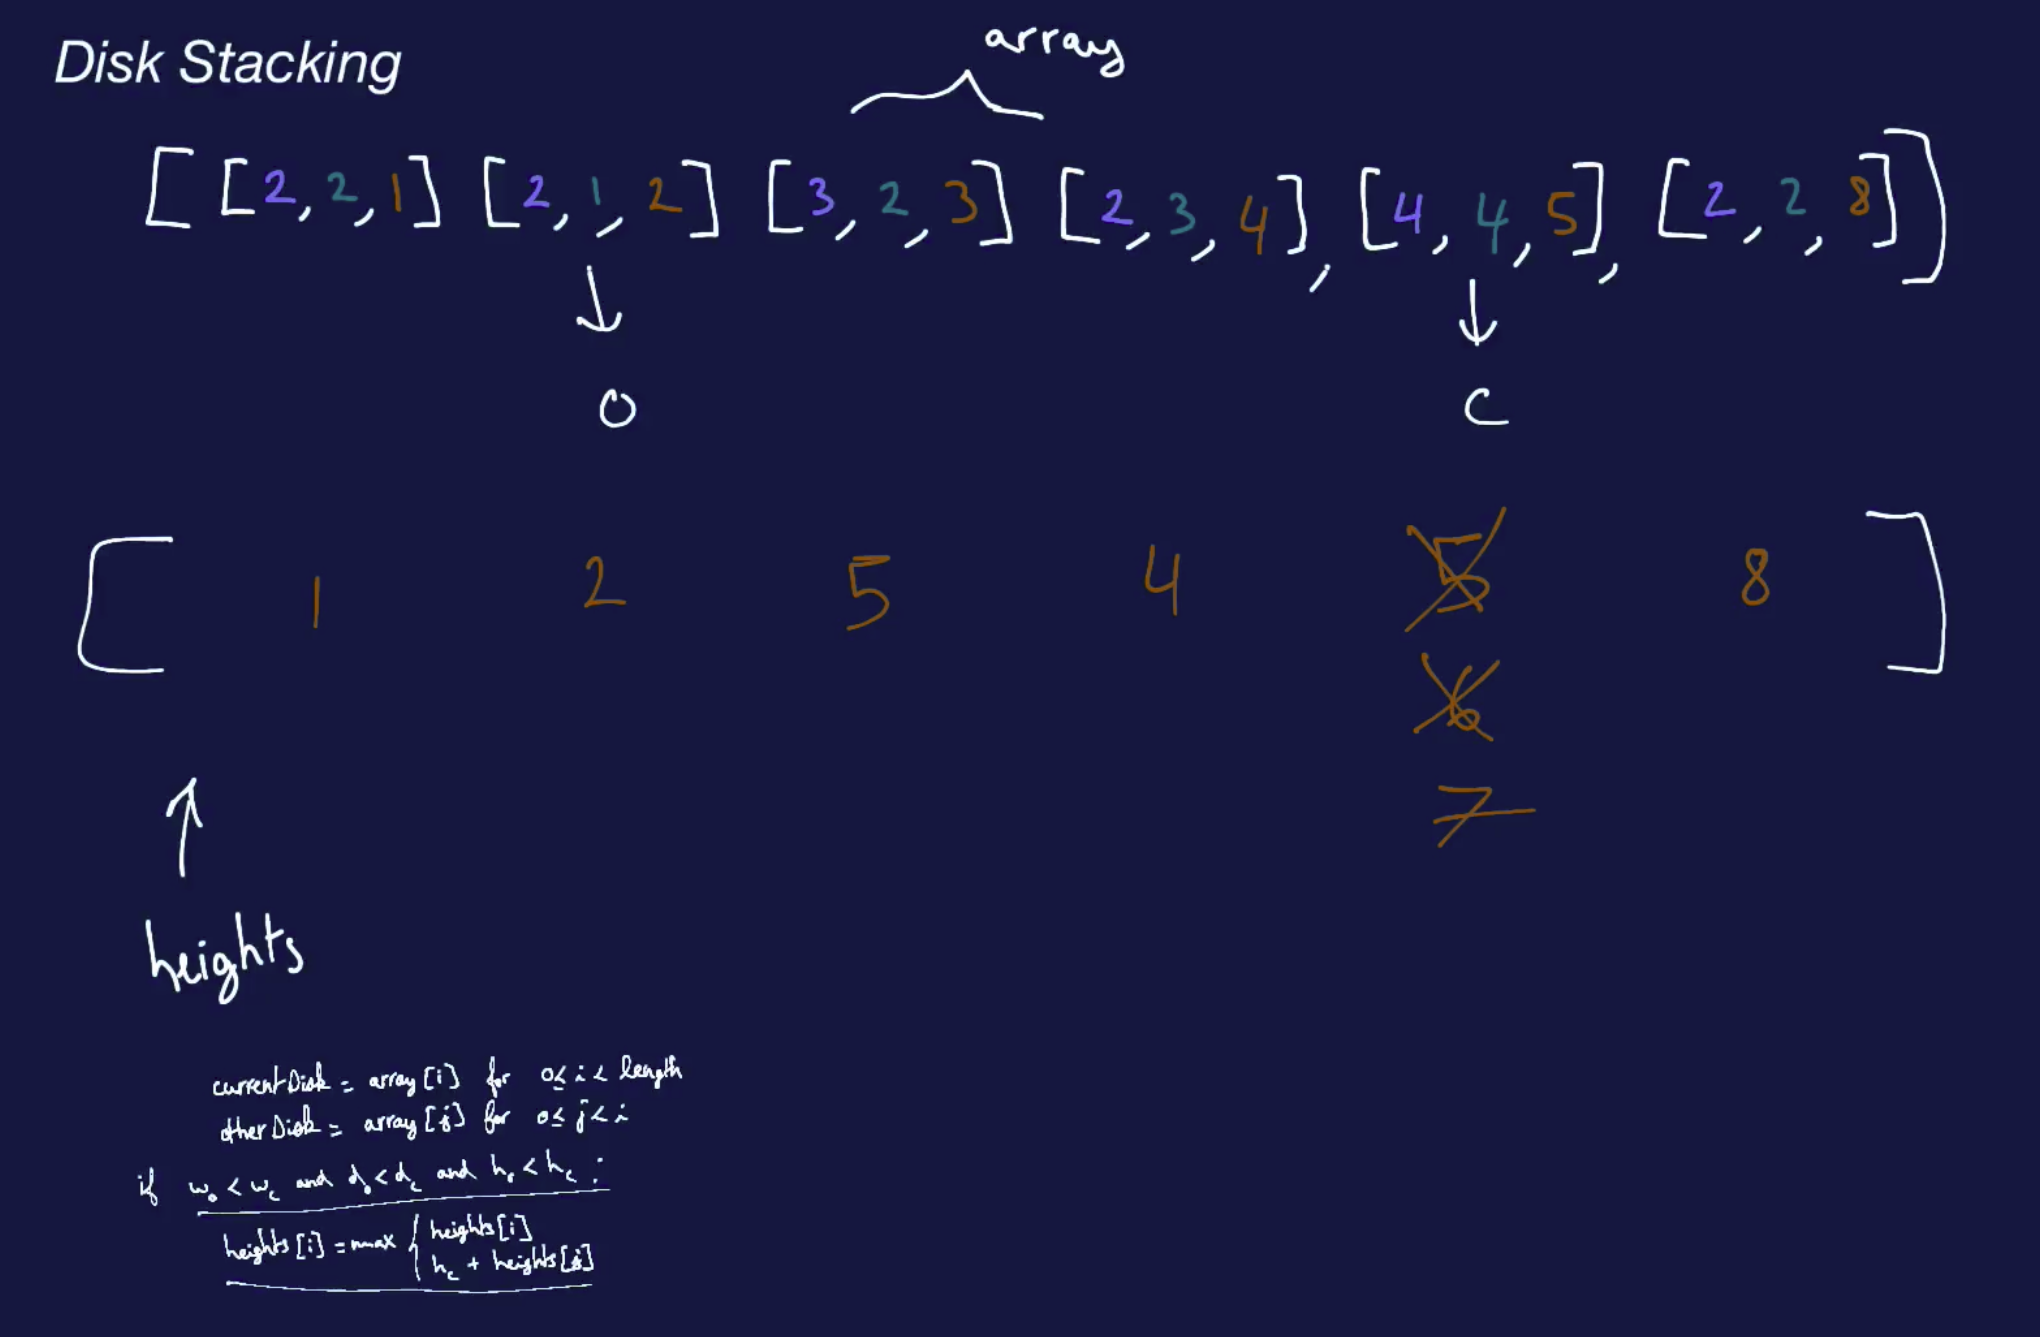 Disk Stacking
array
[ [2,2,1] [2,1,2] [3,2,3] [2,3,4], [4,4,5], [2,2,8] ]
O
C
[ 1 2 5 4 5 8 ]
6
7
heights
currentDisk = array[i] for 0≤i<length
otherDisk = array[j] for 0≤j<i
if w₀<w_c and d₀<d_c and h₀<h_c :
heights[i] = max { heights[i]
h_c + heights[j]